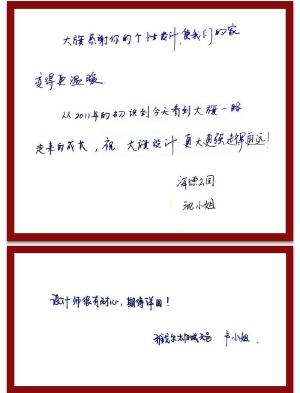 大猫感谢你的个性设计,使我们的家
变得更温暖
从2011年的初识到今天看到大猫一路
走来的成长,祝大猫设计更大更强走得更远!
海德公园
沈小姐
设计师很有耐心,期待详图!
卢小姐.